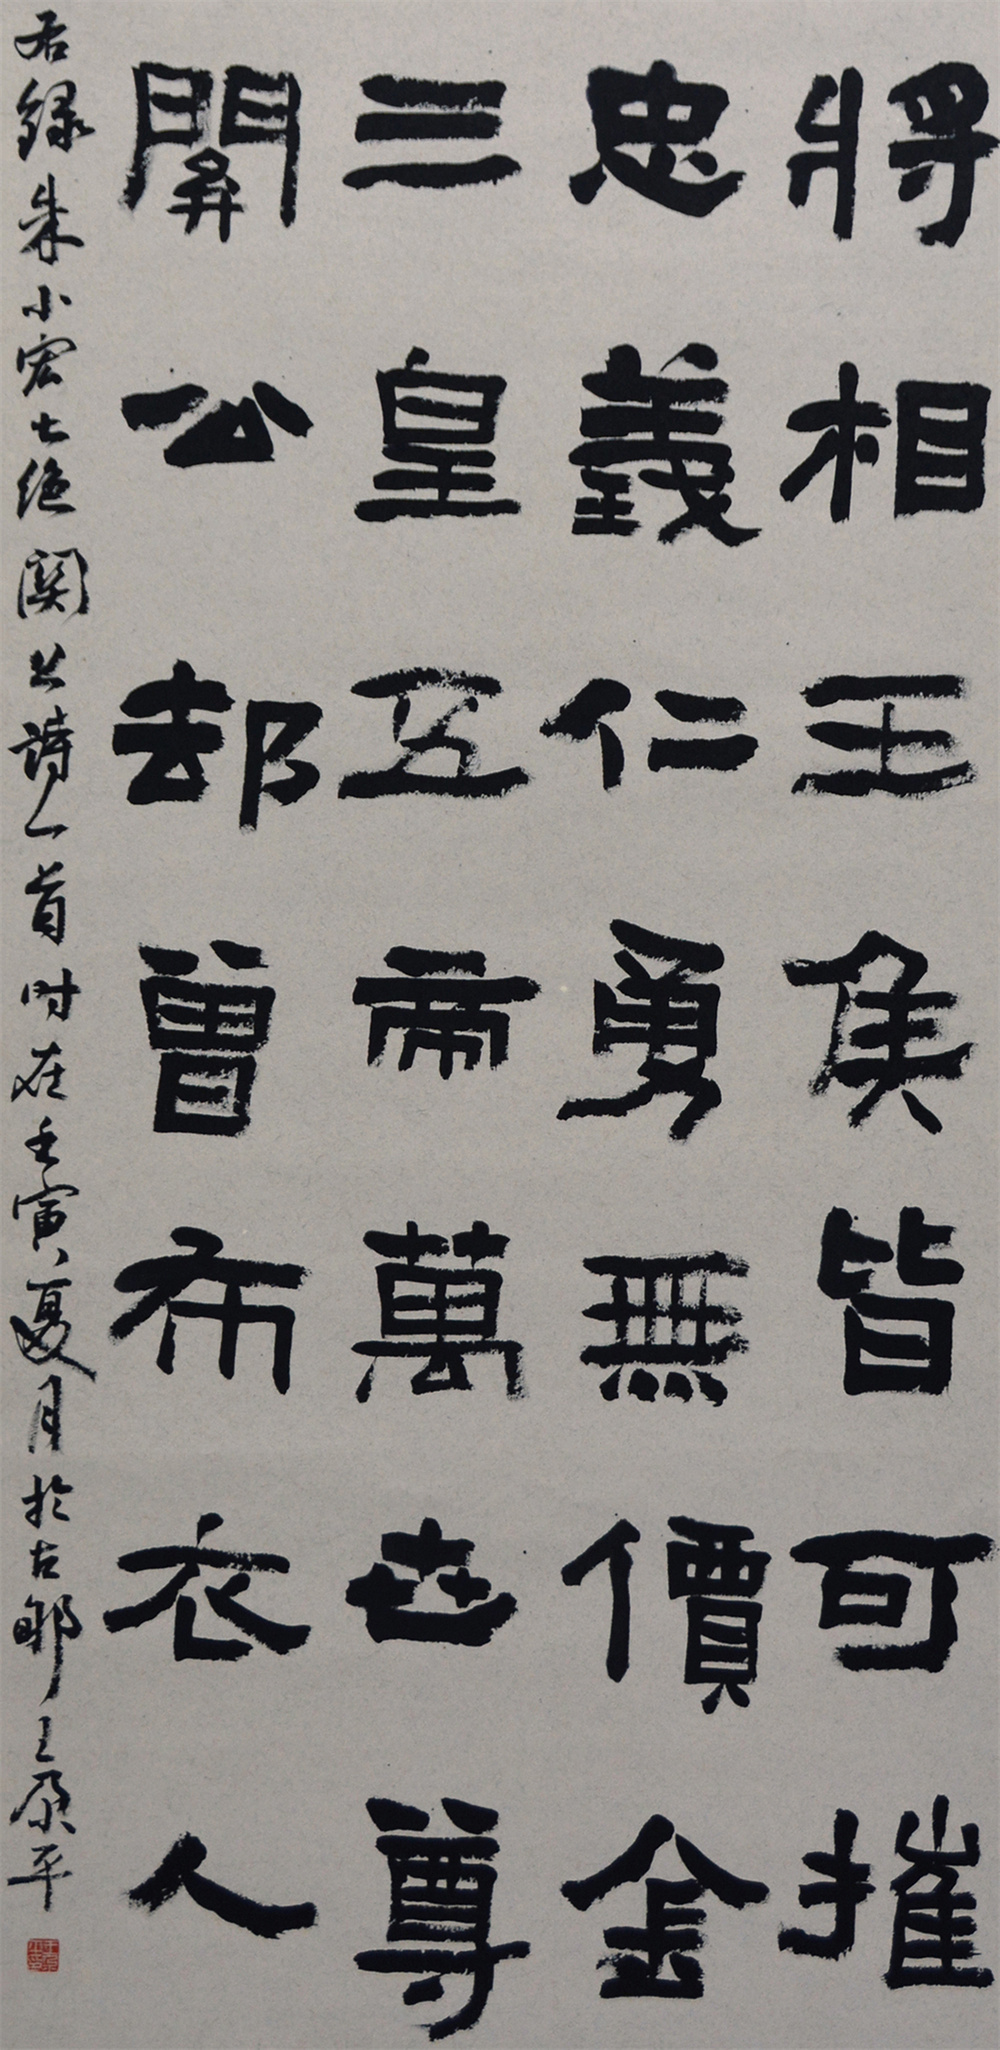 將相王侯皆可摧
忠義仁勇無價金
三皇五帝萬世尊
關公却曾布衣人
右録朱小宏七绝関公詩一首时在壬寅夏月於古鄴王原平